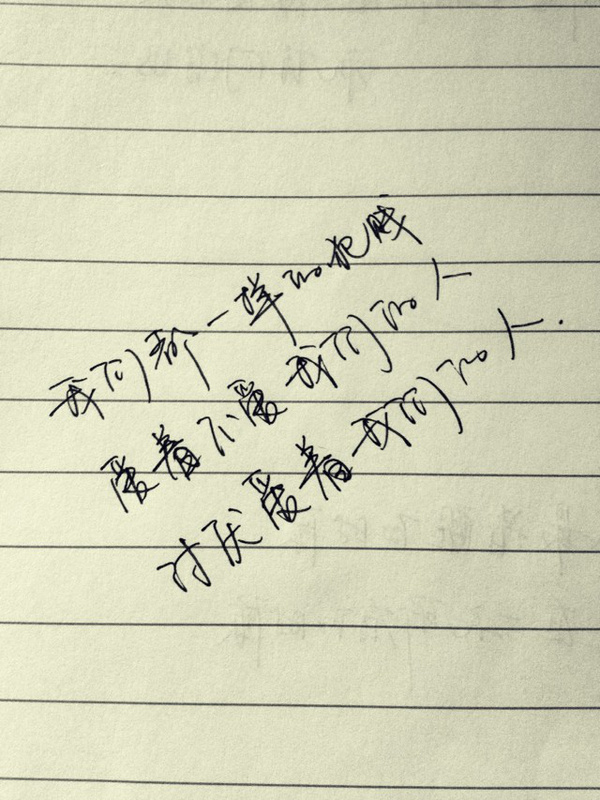 我们都一样的犯贱
爱着不爱我们的人
讨厌爱着我们的人.